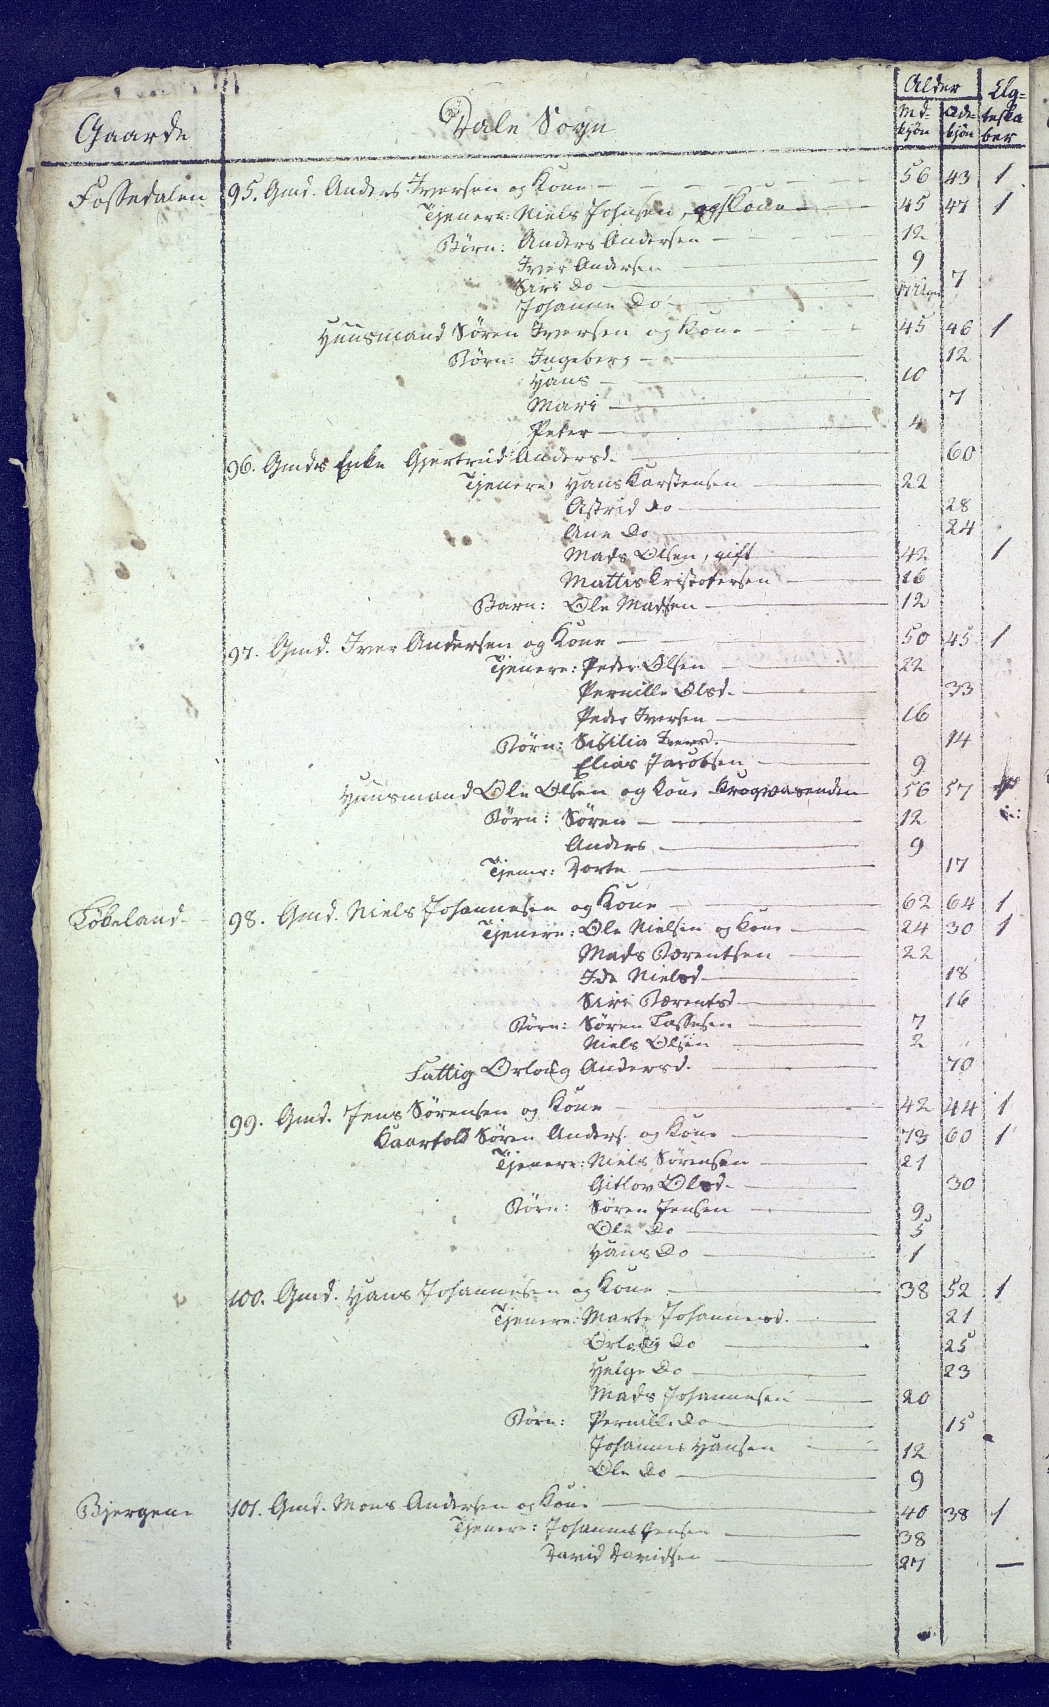 Gaarde Dale Sogn Alder Ægteskaber
Md-kjön Qde-kjön
Fossedalen 95. Gmd. Anders Iversen og Kone 56 43 1
Tjenere: Niels Johnsen, og Kone 45 47 1
Börn: Anders Andersen 12
Iver Andersen 9
Siri Do 7
Johanne Do
Huusmand Sören Iversen og Kone 45 46 1
Börn: Ingeberg 12
Hans 10
Mari 7
Peter 4
96. Gmds Enke Gjertrud Andersd. 60
Tjenere: Hans Karstensen 22
Astrid do 28
Ane Do 24
Mads Olsen, gift 42 1
Mattis Kristofersen 16
Barn: Ole Madsen 12
97. Gmd. Iver Andersen og Kone 50 45 1
Tjenere: Peder Olsen 22
Pernille Olsd. 33
Peder Iversen 16
Börn: Sisilia Iversd. 14
Elias Jacobsen 9
Huusmand Ole Olsen og Kone Krogvasenden 56 57
Börn: Sören 12
Anders 9
Tjener: Dorte 17
Löbeland 98. Gmd. Niels Johannesen og Kone 62 64 1
Tjenere: Ole Nielsen og Kone 24 30 1
Mads Bærentsen 22
Ide Nielsd 18
Siri Bærentsd 16
Börn: Sören Lassesen 7
Niels Olsen 2
Fattig Orlaug Andersd. 70
99. Gmd. Jens Sörensen og Kone 42 44 1
Kaarfold Sören Anders. og Kone 73 60 1
Tjenere: Niels Sörensen 21
Gitlov Olsd. 30
Börn: Sören Jensen 9
Ole Do 5
Hans Do 1
100. Gmd. Hans Johannesen og Kone 38 52 1
Tjenere: Marte Johannesd. 21
Orlaug Do 25
Helge Do 23
Mads Johannesen 20
Börn: Pernille do 15
Johannes Hansen 12
Ole Do 9
Bjergene 101. Gmd. Mons Andersen og Kone 40 38 1
Tjenere: Johannes Jensen 38
David Davidsen 27 —